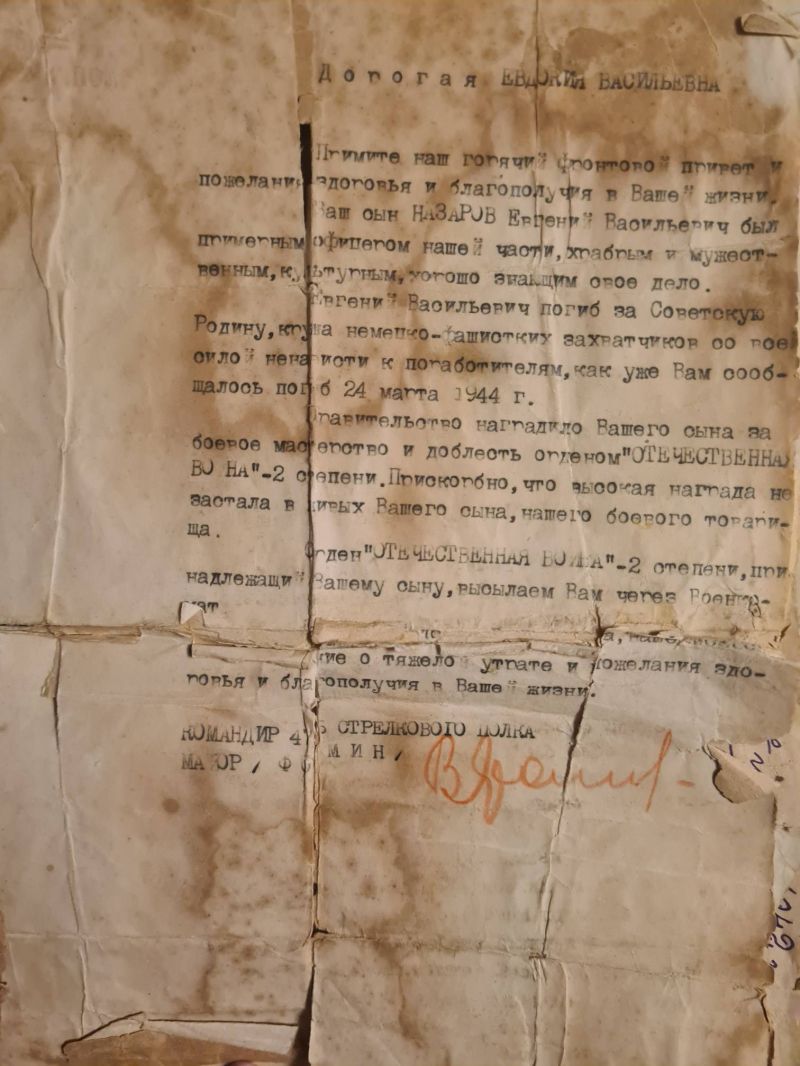 Дорогая ЕВДОКИЯ ВАСИЛЬЕВНА
Примите наш горячий фронтовой привет и
пожелания здоровья и благополучия в Вашей жизни,
Ваш сын НАЗАРОВ Евгений Васильевич был
примерным офицером нашей части, храбрым и мужест-
венным, культурным, хорошо знающим свое дело.
Евгений Васильевич погиб за Советскую
Родину, немецко-фашистких захватчиков со всей
силой ненависти к поработителям, как уже Вам сооб-
щалось погиб 24 марта 1944 г.
Правительство наградило Вашего сына за
боевое мастерство и доблесть орденом "ОТЕЧЕСТВЕННАЯ
ВОЙНА"-2 степени. Прискорбно, что высокая награда не
застала в живых Вашего сына, нашего боевого товари-
ща.
Орден "ОТЕЧЕСТВЕННАЯ ВОЙНА"-2 степени, при
надлежащий Вашему сыну, высылаем Вам через
о тяжелой утрате и пожелания здо-
ровья и благополучия в Вашей жизни.
КОМАНДИР СТРЕЛКОВОГО ПОЛКА
МАЙОР / ФОМИН /